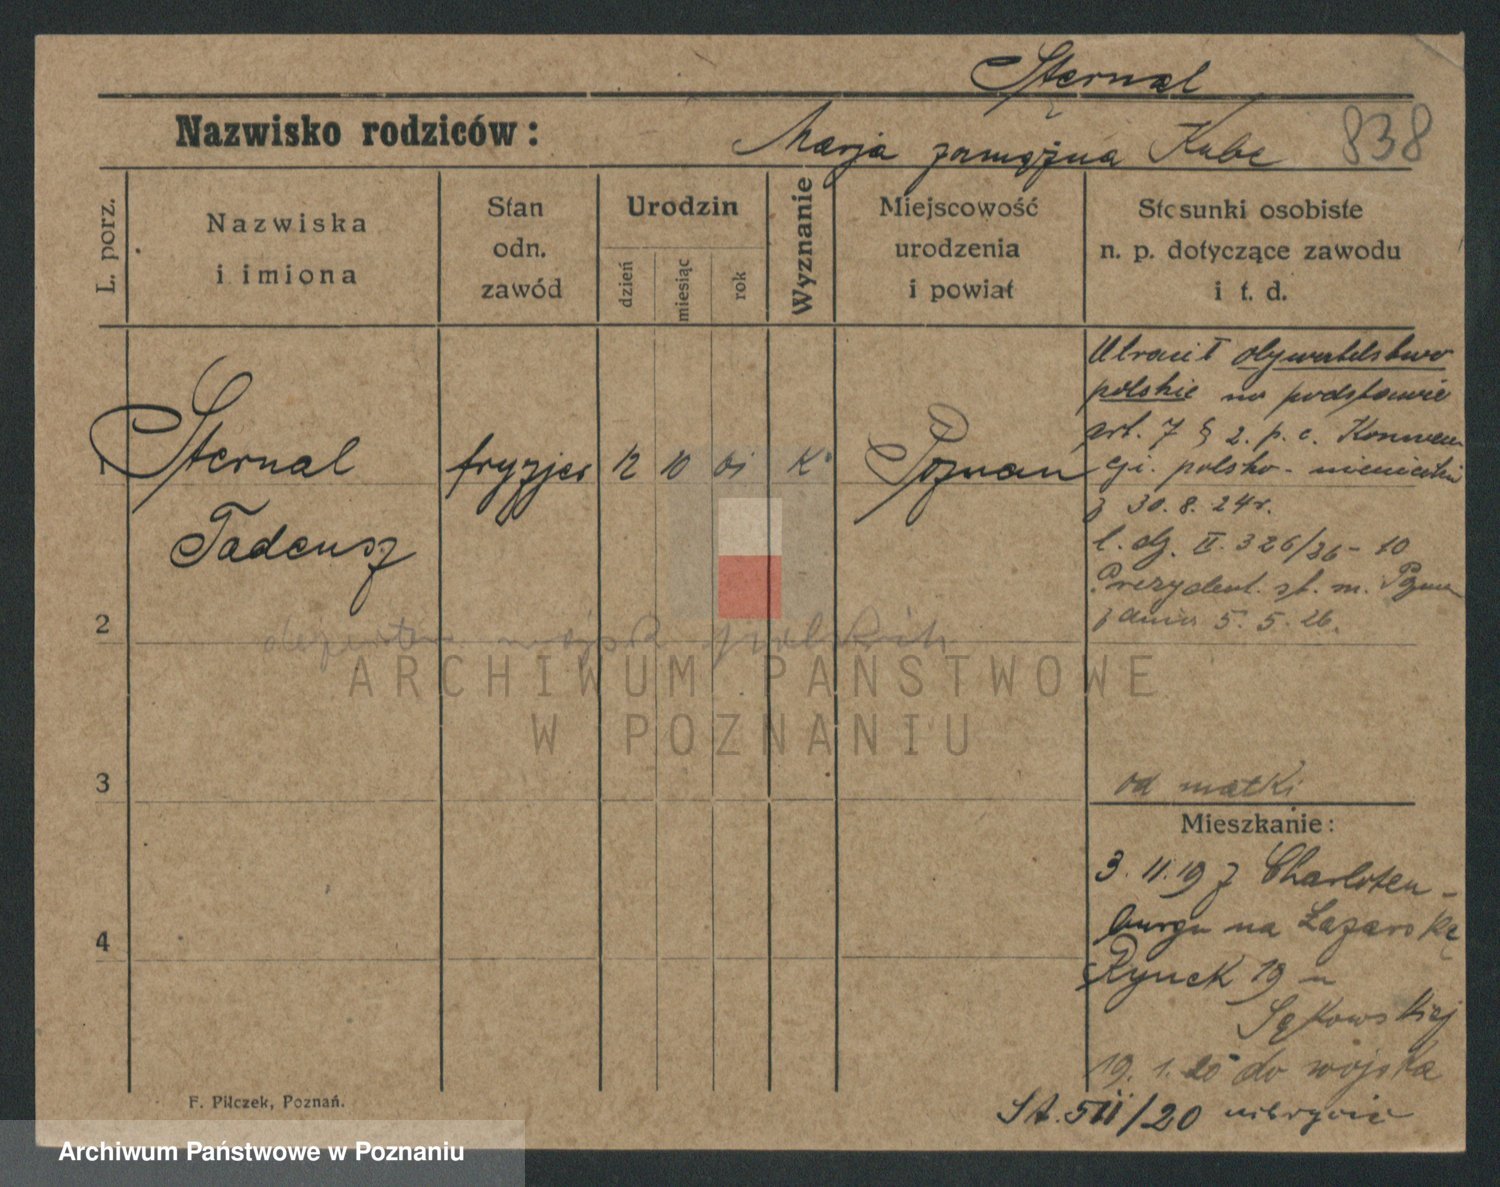 Sternal
Nazwisko rodziców:
Marja zamężna Kube
838
L. porz.
Nazwiska
i imiona
Stan
odn.
zawód
Urodzin
dzień
miesiąc
rok
Wyznanie
Miejscowość
urodzenia
i powiat
Stosunki osobiste
n. p. dotyczące zawodu
i t. d.
1
Sternal
Tadeusz
fryzjer
12
10
01
K
Poznań
Utracił obywatelstwo
polskie na podstawie
art. 7 § 2. p. c. Konwen
cji. polsko-niemieckiej
z 30. 8. 24r.
l. dz. II. 326/26-10
Prezydent. st. m. Pozn
z dnia 5. 5. 26.
2
wojsk polskich
ARCHIWUM PAŃSTWOWE
W POZNANIU
3
od matki
Mieszkanie:
4
3. 11. 19 z Charloten-
burgu na Łazarską
Rynek 19 u
19. 1. 20 do wojska
St. 5II/20
F. Pilczek, Poznań.
Archiwum Państwowe w Poznaniu